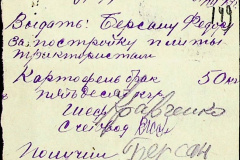 144
Выдать: Берсану Федо
за постройку плиты
трактористам
Картофель брак 50 кг
пятьдесят кг
Кравченко
Счетовод
Получил Берсан